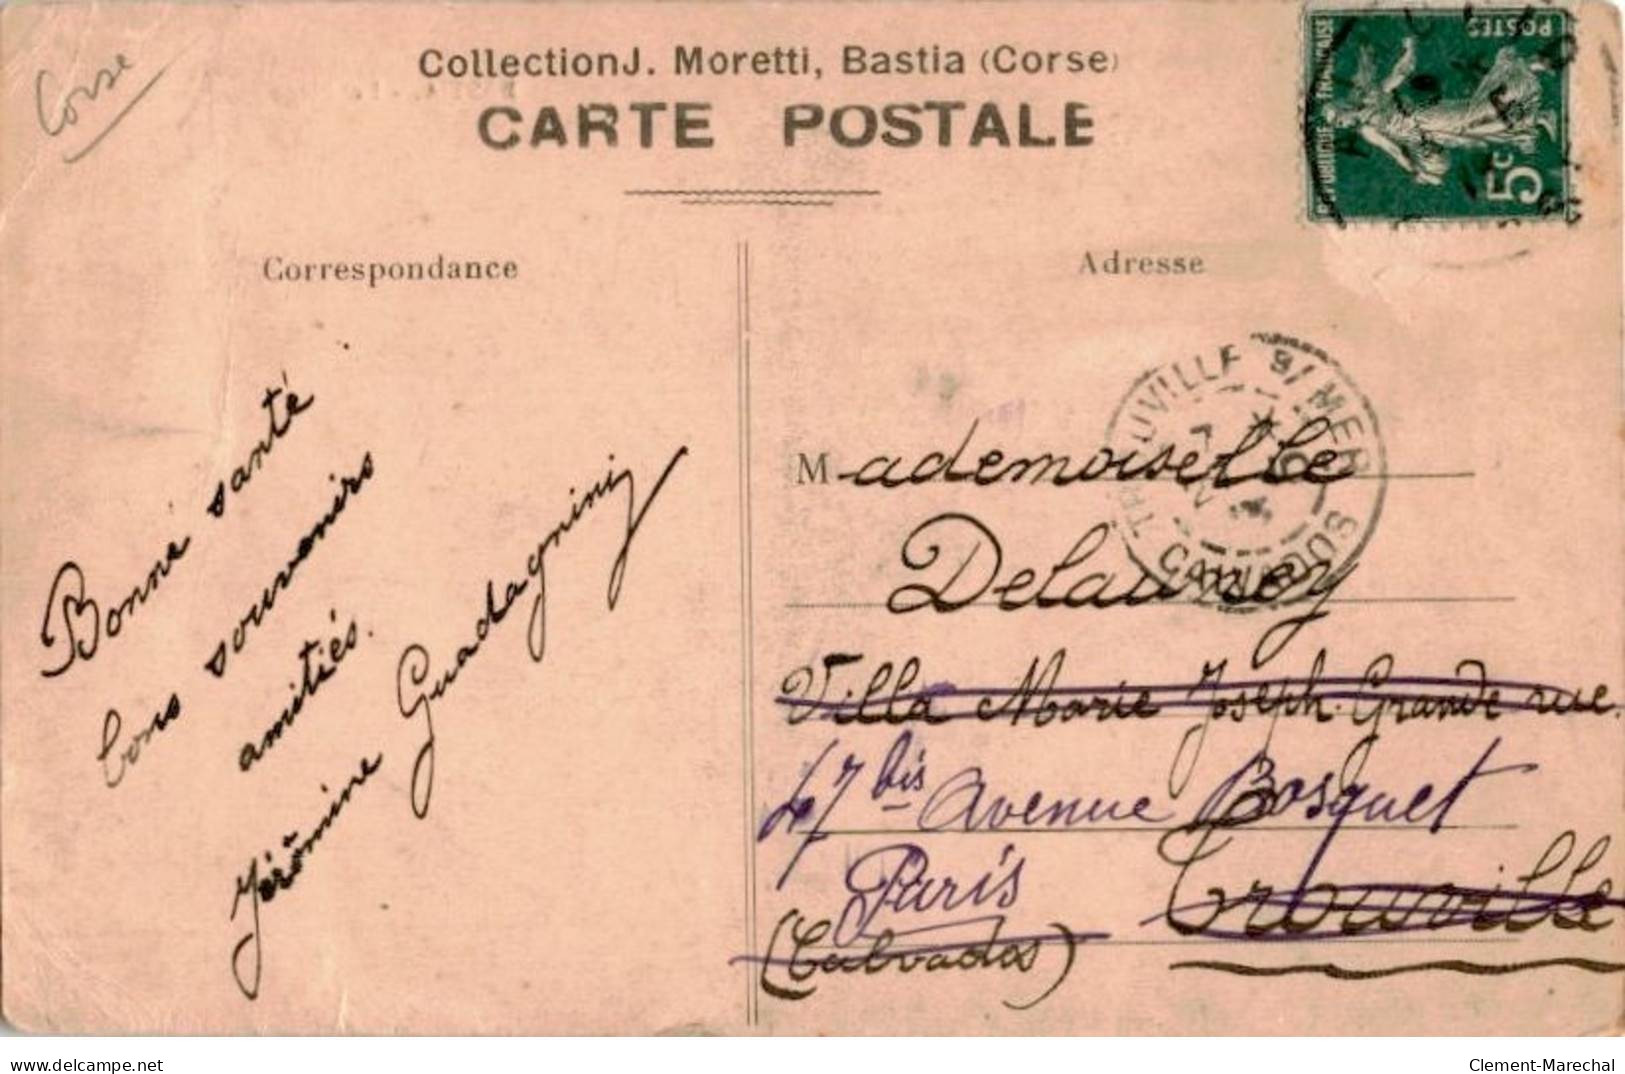 Corse
Collection J. Moretti, Bastia (Corse)
CARTE POSTALE
REPUBLIQUE FRANÇAISE
POSTES
5c
Correspondance
Adresse
Bonne santé
bons souvenirs
amitiés.
Jérômine Guadagnini
TROUVILLE S/ MER
CALVADOS
Mademoiselle
Delauney
Villa Marie Joseph. Grande rue.
47 bis Avenue Bosquet
Paris
Trouville
(Calvados)
delcampe.net
Clement-Marechal